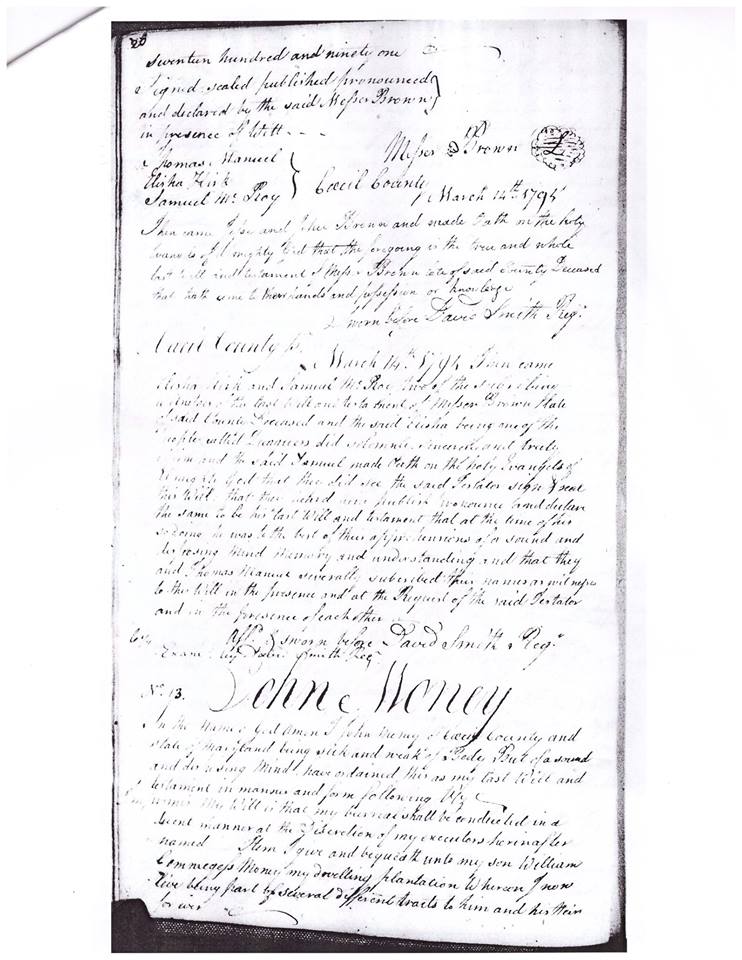 26
seventeen hundred and ninety one
Signed sealed published pronounced
and declared by the said Messer Brown
in presence of Witt - - -
Messer Brown
Thomas Manuel
Elisha Kirk
Samuel Mc Roy
Cecil County March 14th 1795
Then came and Brown and made Oath on the holy
Evangels of Almighty God that the foregoing is the true and whole
last Will and testament of Messer Brown late of said County Deceased
that hath come to their hands and possession or knowledge
Sworn before David Smith Regr
Cecil County Ss.
March 14th 1795 Then came
Elisha Kirk and Samuel Mc Roy two of the subscribing
witnesses of the last Will and testament of Messer Brown late
of said County Deceased and the said Elisha being one of the
People called Quaquers did solemnly sincerely and truly
affirm and the said Samuel made Oath on the holy Evangels of
Almighty God that they did see the said Testator sign & seal
this Will that they heard him publish pronounce and declare
the same to be his last Will and testament that at the time of his
so doing he was to the best of their apprehensions of a sound and
disposing mind memory and understanding and that they
and Thomas Manuel severally subscribed their names as witnesses
to this Will in the presence and at the Request of the said Testator
and in the presence of each other
Aff. & sworn before David Smith Regr
Exam by David Smith Reg
No 13. John Money
In the Name of God Amen I John Money of Cecil County and
state of Maryland being sick and weak of Body But of a sound
and disposing Mind, have ordained this as my last Will and
testament in manner and form following Viz
My Will is that my burreal shall be conducted in a
decent manner at the Discretion of my executors hereinafter
named Item I give and bequeath unto my son William
Commegess Money my dwelling plantation Whereon I now
live being part of several different tracts to him and his Heirs
for ever